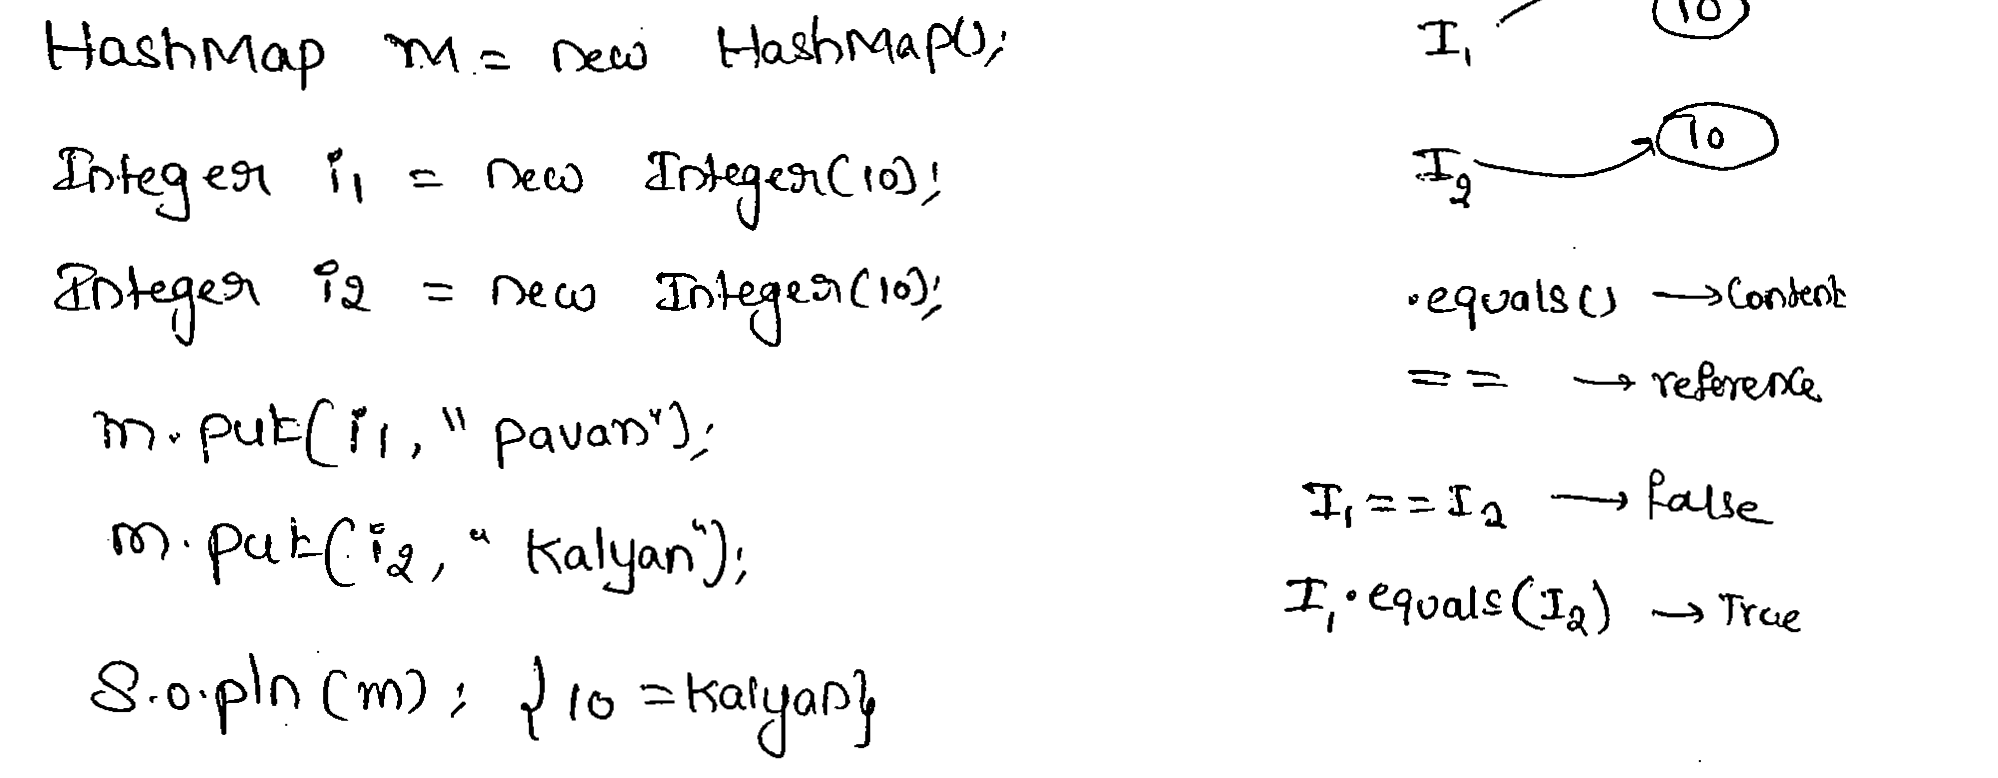 HashMap m = new HashMap();
Integer i1 = new Integer(10);
Integer i2 = new Integer(10);
m.put(i1, "pavan");
m.put(i2, "Kalyan");
S.o.pln(m); {10 = Kalyan}
I1 10
I2 10
.equals() → Content
== → reference
I1 == I2 → false
I1.equals(I2) → True